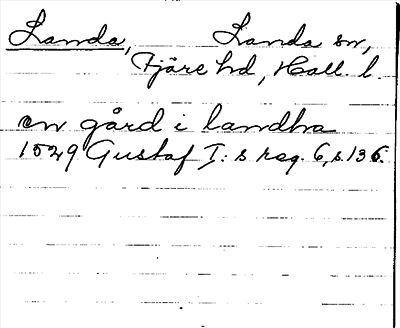 Landa, Landa sn,
Fjäre hd, Hall. l.
en gård i landha
1529 Gustaf I:s reg. 6, s. 136.